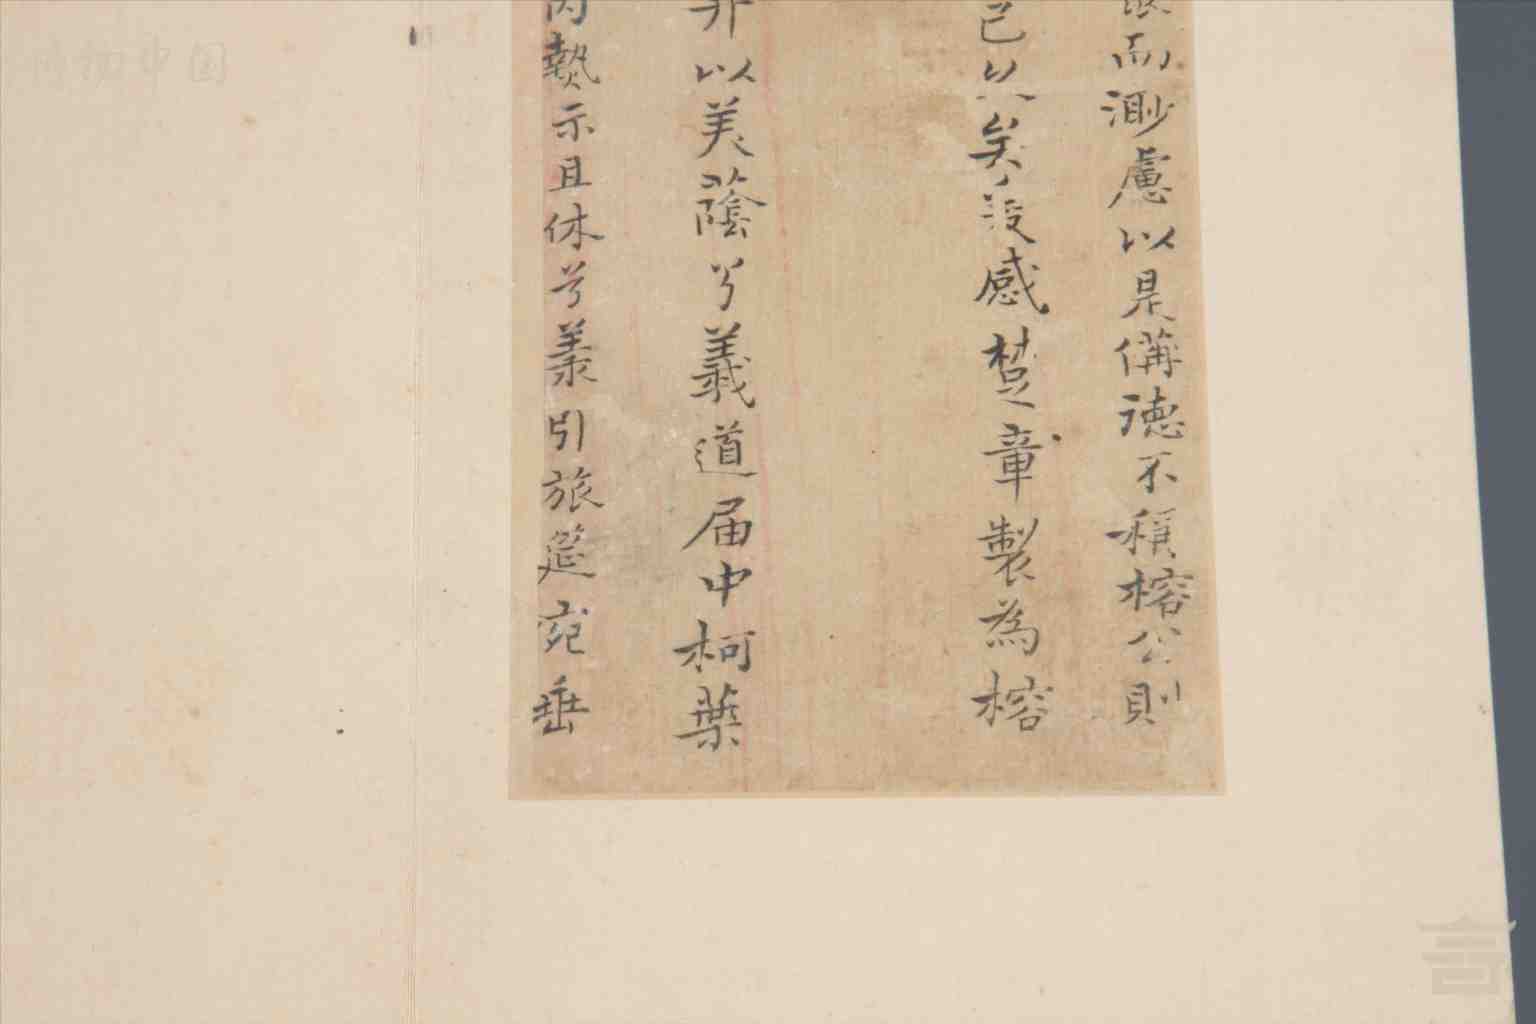 而渺慮以是備德不稱榕公則
已矣爰感楚章製為榕
以美蔭兮義道届中柯葉
丙蓺示且休兮羕引旅筵宛垂
博物中国